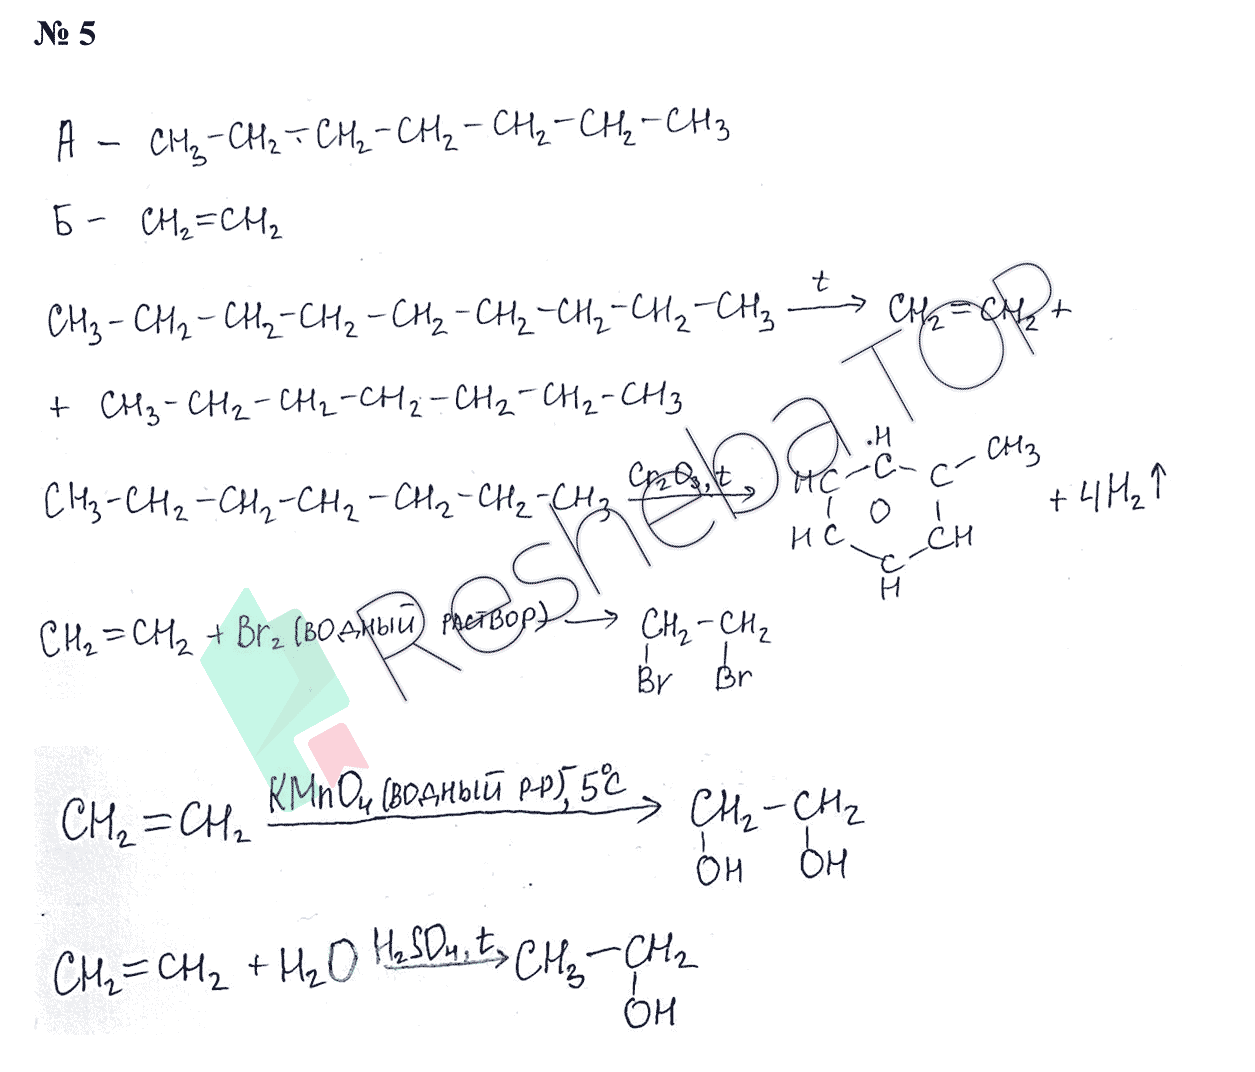 № 5
А – CH3–CH2–CH2–CH2–CH2–CH2–CH3
Б – CH2=CH2
CH3–CH2–CH2–CH2–CH2–CH2–CH2–CH2–CH3 t→ CH2=CH2 +
+ CH3–CH2–CH2–CH2–CH2–CH2–CH3
CH3–CH2–CH2–CH2–CH2–CH2–CH3 Cr2O3, t→ HC–CH–C–CH3 + 4H2↑
HC CH
C
H
CH2=CH2 + Br2 (ВОДНЫЙ РАСТВОР) → CH2–CH2
Br Br
CH2=CH2 KMnO4 (ВОДНЫЙ Р-Р), 5°C→ CH2–CH2
OH OH
CH2=CH2 + H2O H2SO4, t→ CH3–CH2
OH
Resheba.TOP